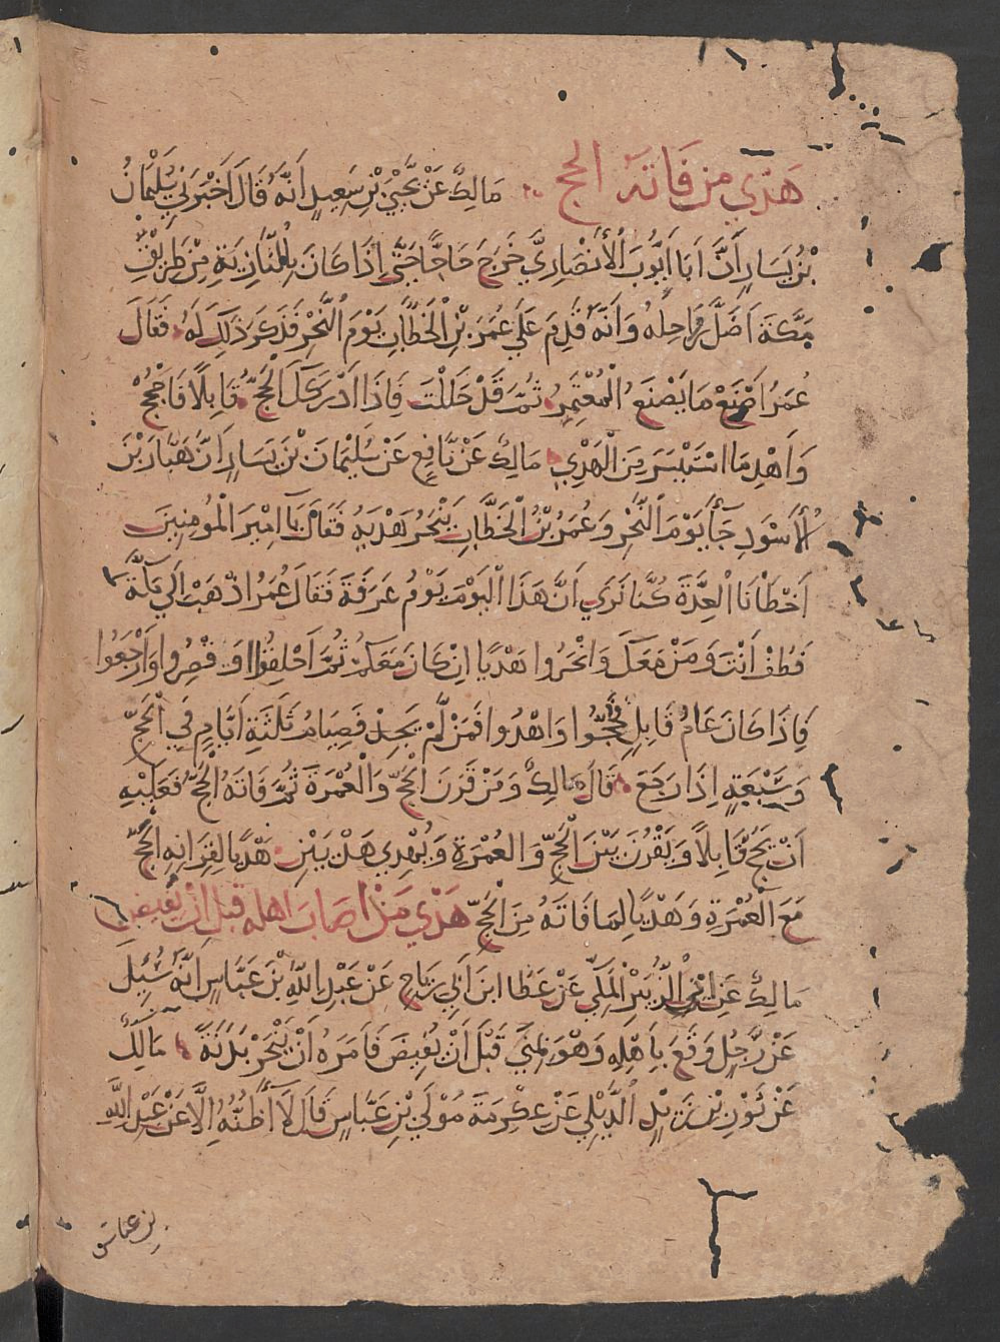 هَدْيُ مَنْ فَاتَهُ الحج مَالِكٌ عَنْ يَحْيَى بْنِ سَعِيدٍ أَنَّهُ قَالَ أَخْبَرَنِي سُلَيْمَانُ
بْنُ يَسَارٍ أَنَّ أَبَا أَيُّوبَ الْأَنْصَارِيَّ خَرَجَ حَاجًّا حَتَّى إِذَا كَانَ بِالنَّازِيَةِ مِنْ طَرِيقِ
مَكَّةَ أَضَلَّ رَوَاحِلَهُ وَأَنَّهُ قَدِمَ عَلَى عُمَرَ بْنِ الْخَطَّابِ يَوْمَ النَّحْرِ فَذَكَرَ ذَلِكَ لَهُ فَقَالَ
عُمَرُ اصْنَعْ مَا يَصْنَعُ الْمُعْتَمِرُ ثُمَّ قَدْ حَلَلْتَ فَإِذَا أَدْرَكَكَ الْحَجُّ قَابِلًا فَاحْجُجْ
وَأَهْدِ مَا اسْتَيْسَرَ مِنَ الْهَدْيِ مَالِكٌ عَنْ نَافِعٍ عَنْ سُلَيْمَانَ بْنِ يَسَارٍ أَنَّ هَبَّارَ بْنَ
الْأَسْوَدِ جَاءَ يَوْمَ النَّحْرِ وَعُمَرُ بْنُ الْخَطَّابِ يَنْحَرُ هَدْيَهُ فَقَالَ يَا امِيرَ الْمُومِنِينَ
أَخْطَأْنَا الْعِدَّةَ كُنَّا نَرَى أَنَّ هَذَا الْيَوْمَ يَوْمُ عَرَفَةَ فَقَالَ عُمَرُ اذْهَبْ إِلَى مَكَّةَ
فَطُفْ أَنْتَ وَمَنْ مَعَكَ وَانْحَرُوا هَدْيًا إِنْ كَانَ مَعَكُمْ ثُمَّ احْلِقُوا اوْ قَصِّرُوا وَارْجِعُوا
فَإِذَا كَانَ عَامُ قَابِلٍ فَحُجُّوا وَاهْدُوا فَمَنْ لَمْ يَجِدْ فَصِيَامُ ثَلَثَةِ أَيَّامٍ فِي الْحَجِّ
وَسَبْعَةٍ إِذَا رَجَعَ قَالَ مَالِكٌ وَمَنْ قَرَنَ الْحَجَّ وَالْعُمْرَةَ ثُمَّ فَاتَهُ الْحَجُّ فَعَلَيْهِ
أَنْ يَحُجَّ قَابِلًا وَيَقْرُنَ بَيْنَ الْحَجِّ وَالْعُمْرَةِ وَيُهْدِي هَدْيَيْنِ هَدْيًا لِقِرَانِهِ الْحَجَّ
مَعَ الْعُمْرَةِ وَهَدْيًا لِمَا فَاتَهُ مِنَ الْحَجِّ هَدْيُ مَنْ اصَابَ اهله قبل ان يفيض
مَالِكٌ عَنْ ابِي الزُّبَيْرِ الْمَكِّيِّ عَنْ عَطَا ابْنِ أَبِي رَبَاحٍ عَنْ عَبْدِ اللَّهِ بْنِ عَبَّاسٍ أَنَّهُ سُئِلَ
عَنْ رَجُلٍ وَقَعَ بِأَهْلِهِ وَهْوَ بِمِنًى قَبْلَ أَنْ يُفِيضَ فَأَمَرَهُ أَنْ يَنْحَرَ بَدَنَةً مَالِكٌ
عَنْ ثَوْرِ بْنِ زَيْدٍ الدِّيلِيِّ عَنْ عِكْرِمَةَ مَوْلَى بْنِ عَبَّاسٍ قَالَ لَا أَظُنُّهُ إِلَّا عَنْ عَبْدِ اللَّهِ
بن عباس